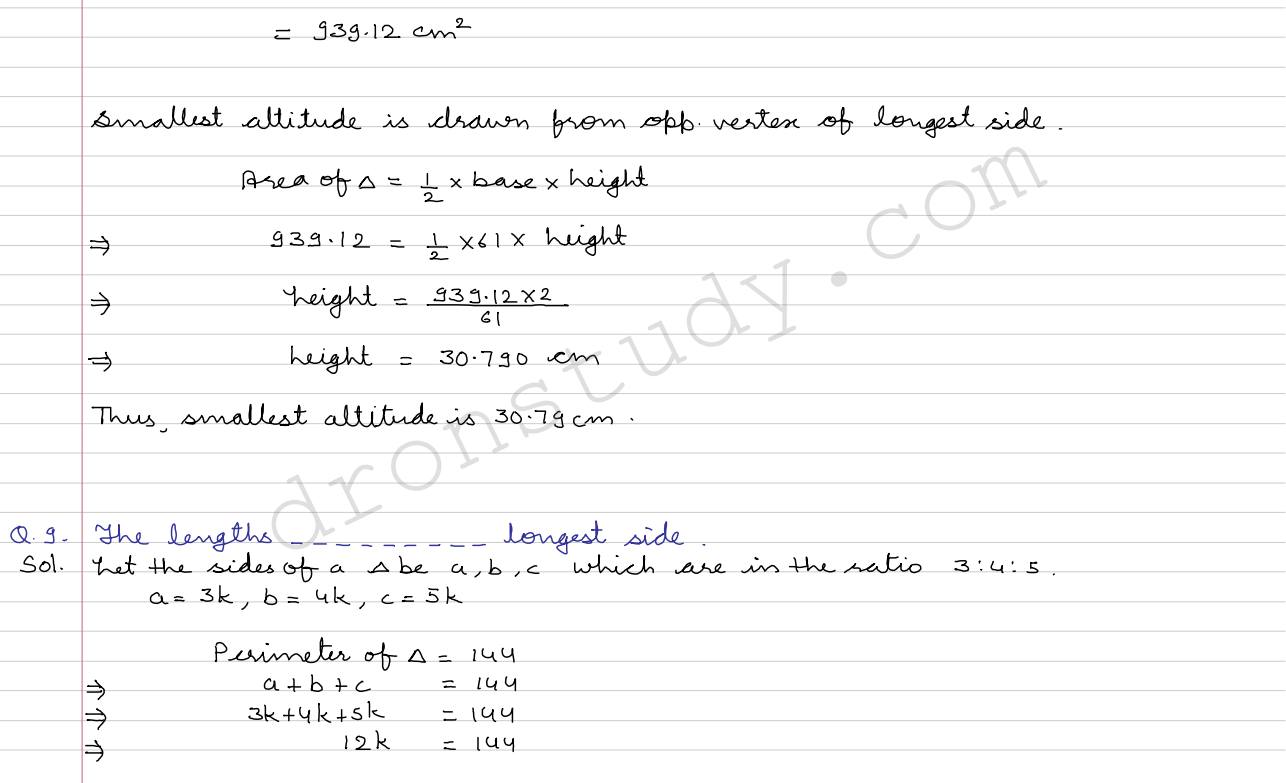 = 939.12 cm²
Smallest altitude is drawn from opp. vertex of longest side.
Area of Δ = 1/2 × base × height
⇒ 939.12 = 1/2 × 61 × height
⇒ height = 939.12 × 2 / 61
⇒ height = 30.790 cm
Thus, smallest altitude is 30.79 cm.
Q.9. The lengths _ _ _ _ _ _ _ _ _ longest side.
Sol. Let the sides of a Δ be a, b, c which are in the ratio 3:4:5.
a = 3k, b = 4k, c = 5k
Perimeter of Δ = 144
⇒ a + b + c = 144
⇒ 3k + 4k + 5k = 144
⇒ 12k = 144
dronstudy.com